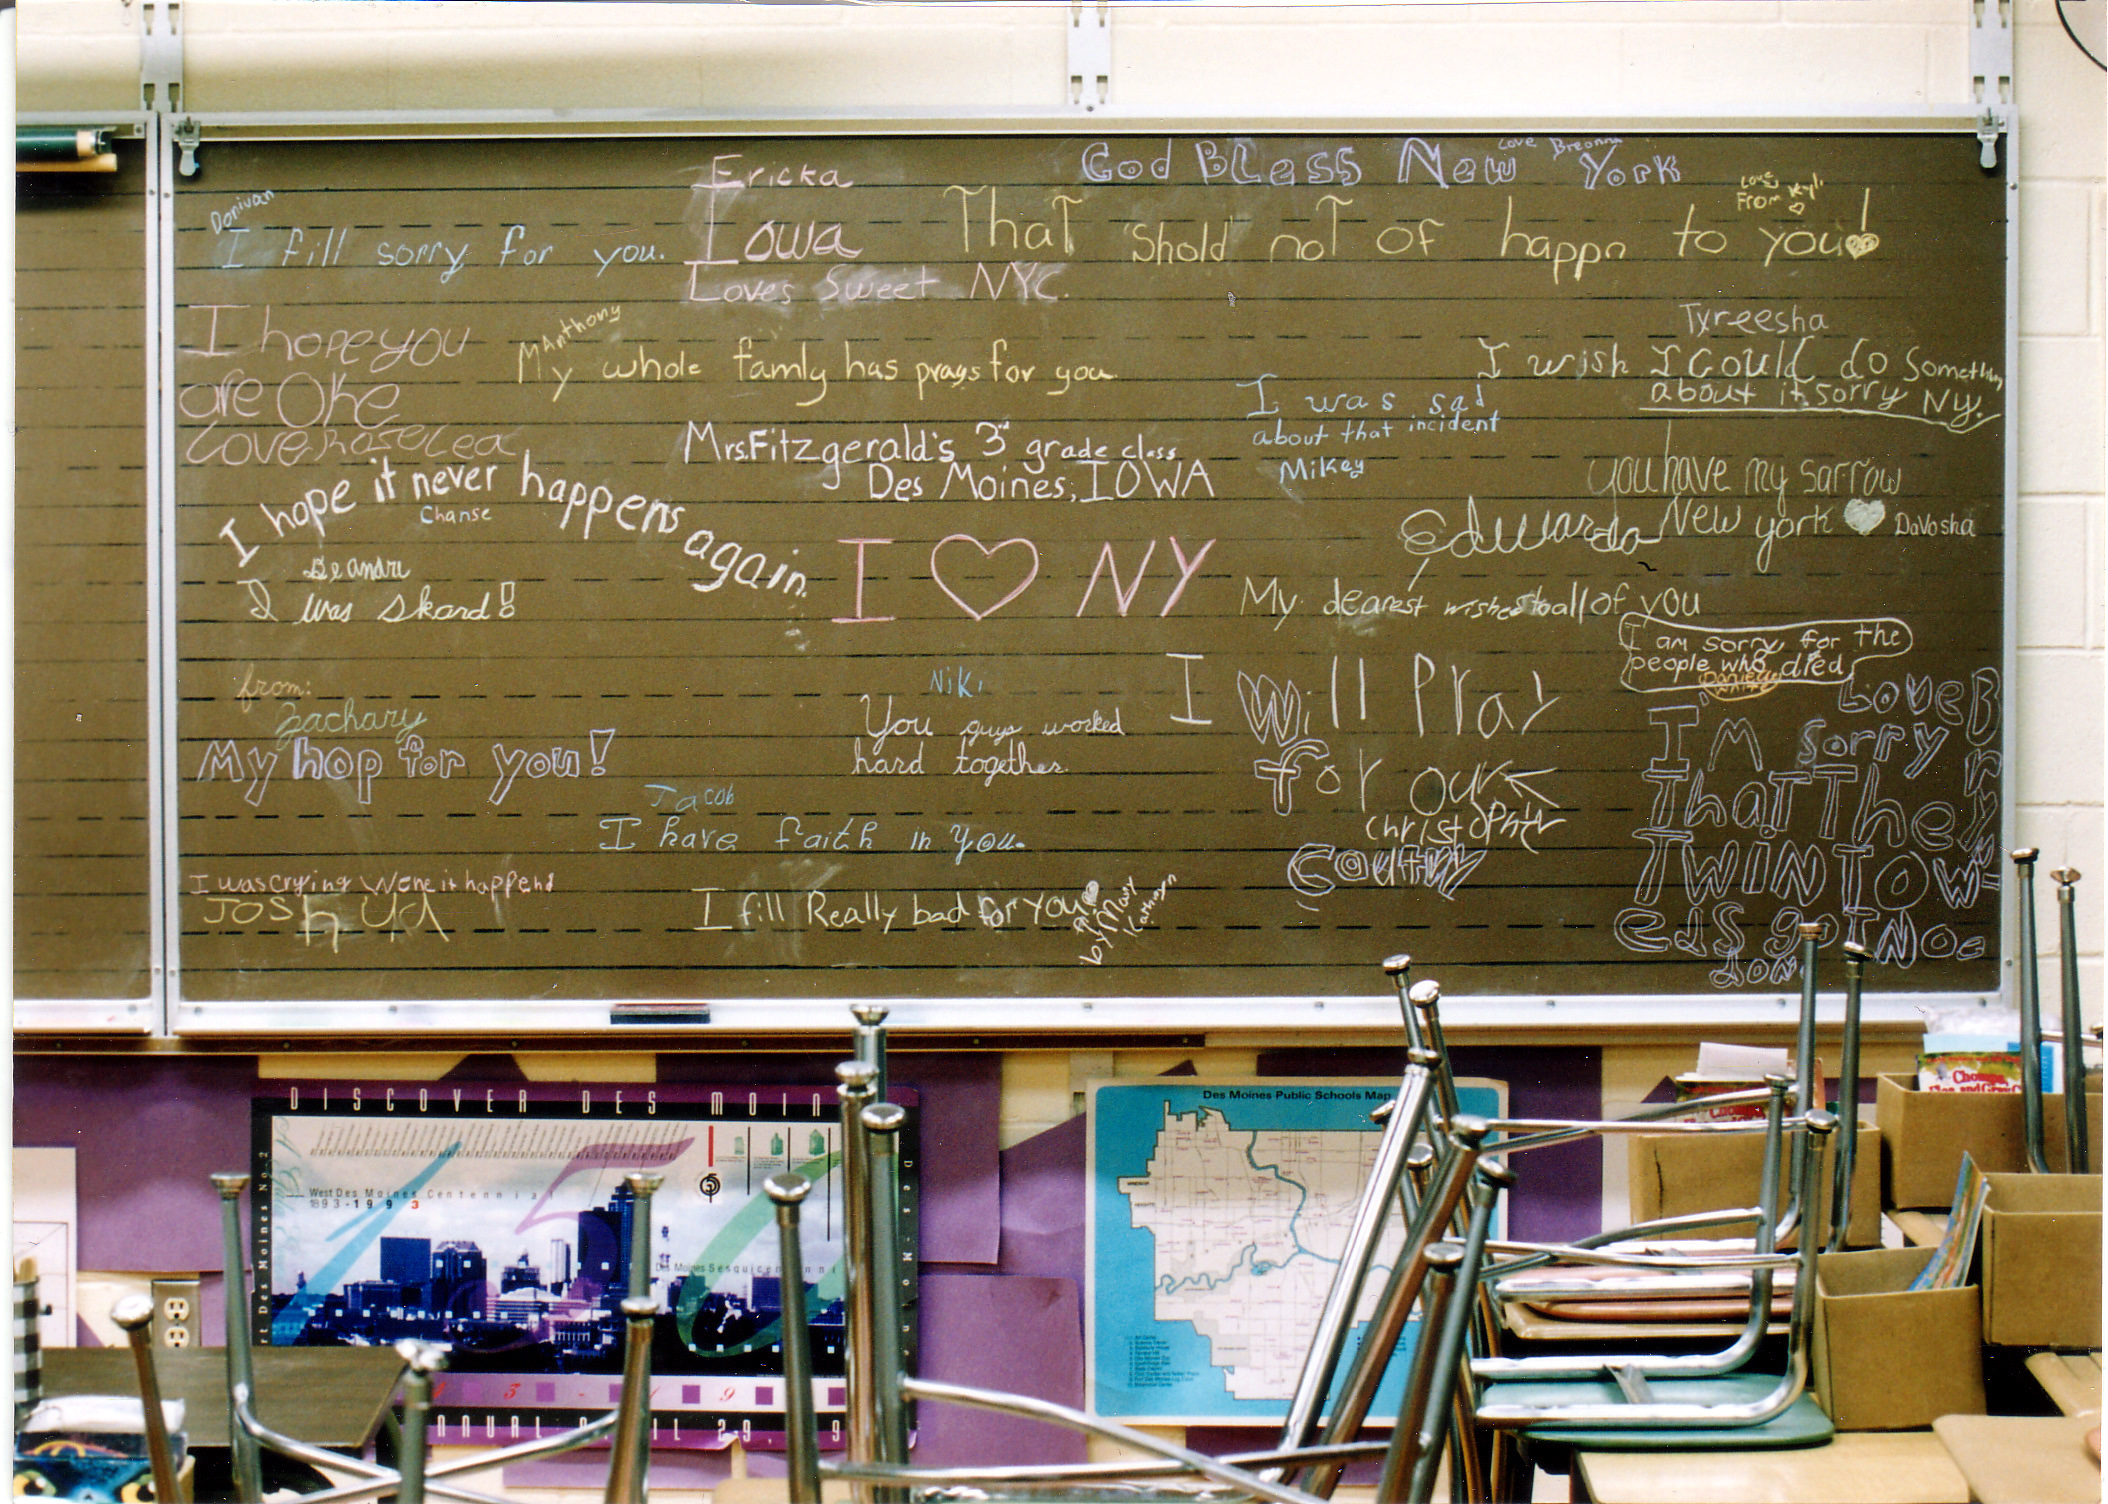 God Bless New York
Love Breonna
Donivan
I fill sorry for you.
Ericka
Iowa
Loves Sweet NYC.
That shold not of happn to you!
Love
From Kyli
I hope you
are Oke
Love, Rose Lea
Anthony
My whole famly has prays for you.
Tyreesha
I wish I could do Something
about it sorry NY.
I was sad
about that incident
Mikey
Mrs. Fitzgerald's 3rd grade class
Des Moines, IOWA
you have my sarrow
New york
DaVosha
I hope it never happens again.
Chanse
Edwardo
My dearest wishes to all of you
I NY
Deandre
I was skard!
I am sorry for the
people who died
Danielle
White
from:
Zachary
My hop for you!
Niki
You guys worked
hard together.
I Will Pray
for our
Christopher
Country
Love Bryn
I'M Sorry
That The
TWIN TOW
ers goINOe
Jacob
I have faith in you.
I was crying Wene it happend
Joshua
I fill Really bad for you
by Mary
Kathryn
DISCOVER DES MOIN
West Des Moines Centennial
1893-1993
Des Moines Sesquicentenni
Des Moines Public Schools Map